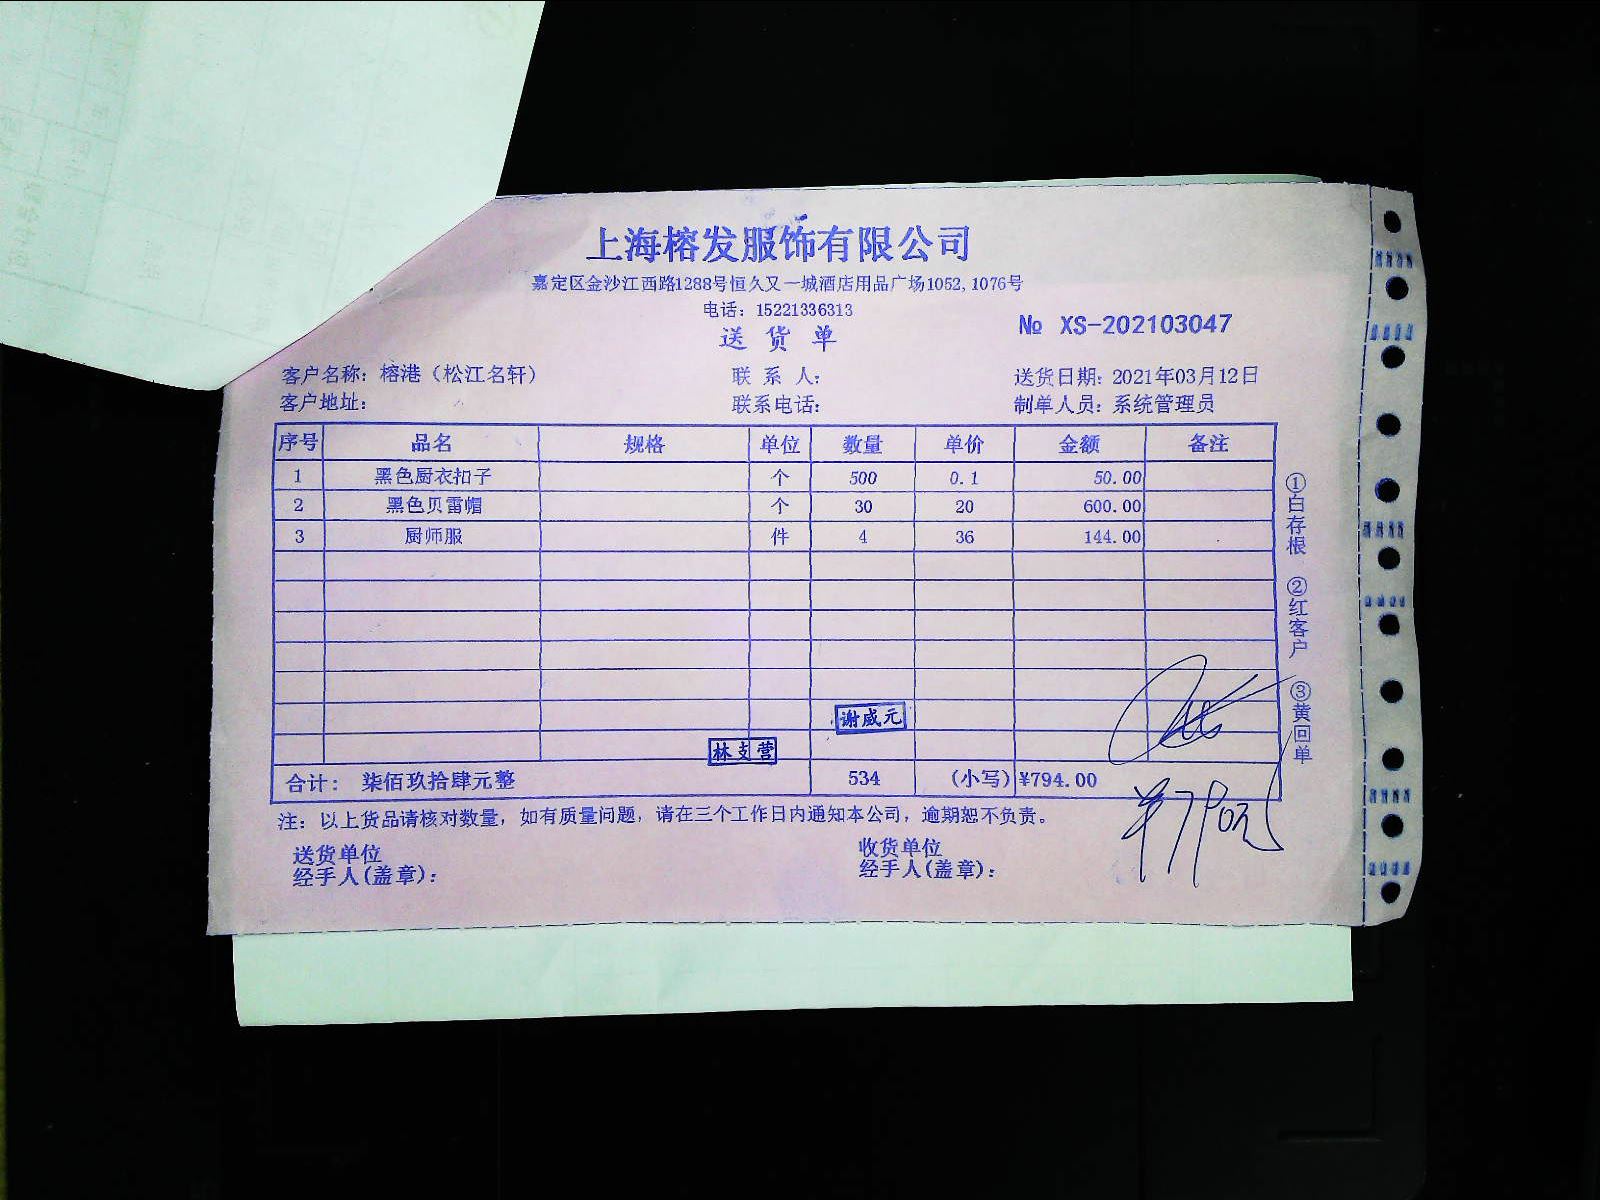 上海榕发服饰有限公司
嘉定区金沙江西路1288号恒久又一城酒店用品广场1052, 1076号
电话: 15221336313
送 货 单
№ XS-202103047
客户名称: 榕港（松江名轩） 联 系 人: 送货日期: 2021年03月12日
客户地址: 联系电话: 制单人员: 系统管理员
序号 品名 规格 单位 数量 单价 金额 备注
1 黑色厨衣扣子 个 500 0.1 50.00
2 黑色贝雷帽 个 30 20 600.00
3 厨师服 件 4 36 144.00
谢威元
林支营
合计: 柒佰玖拾肆元整 534 (小写) ¥794.00
注: 以上货品请核对数量, 如有质量问题, 请在三个工作日内通知本公司, 逾期恕不负责。
送货单位
经手人(盖章):
收货单位
经手人(盖章):
①白存根 ②红客户 ③黄回单